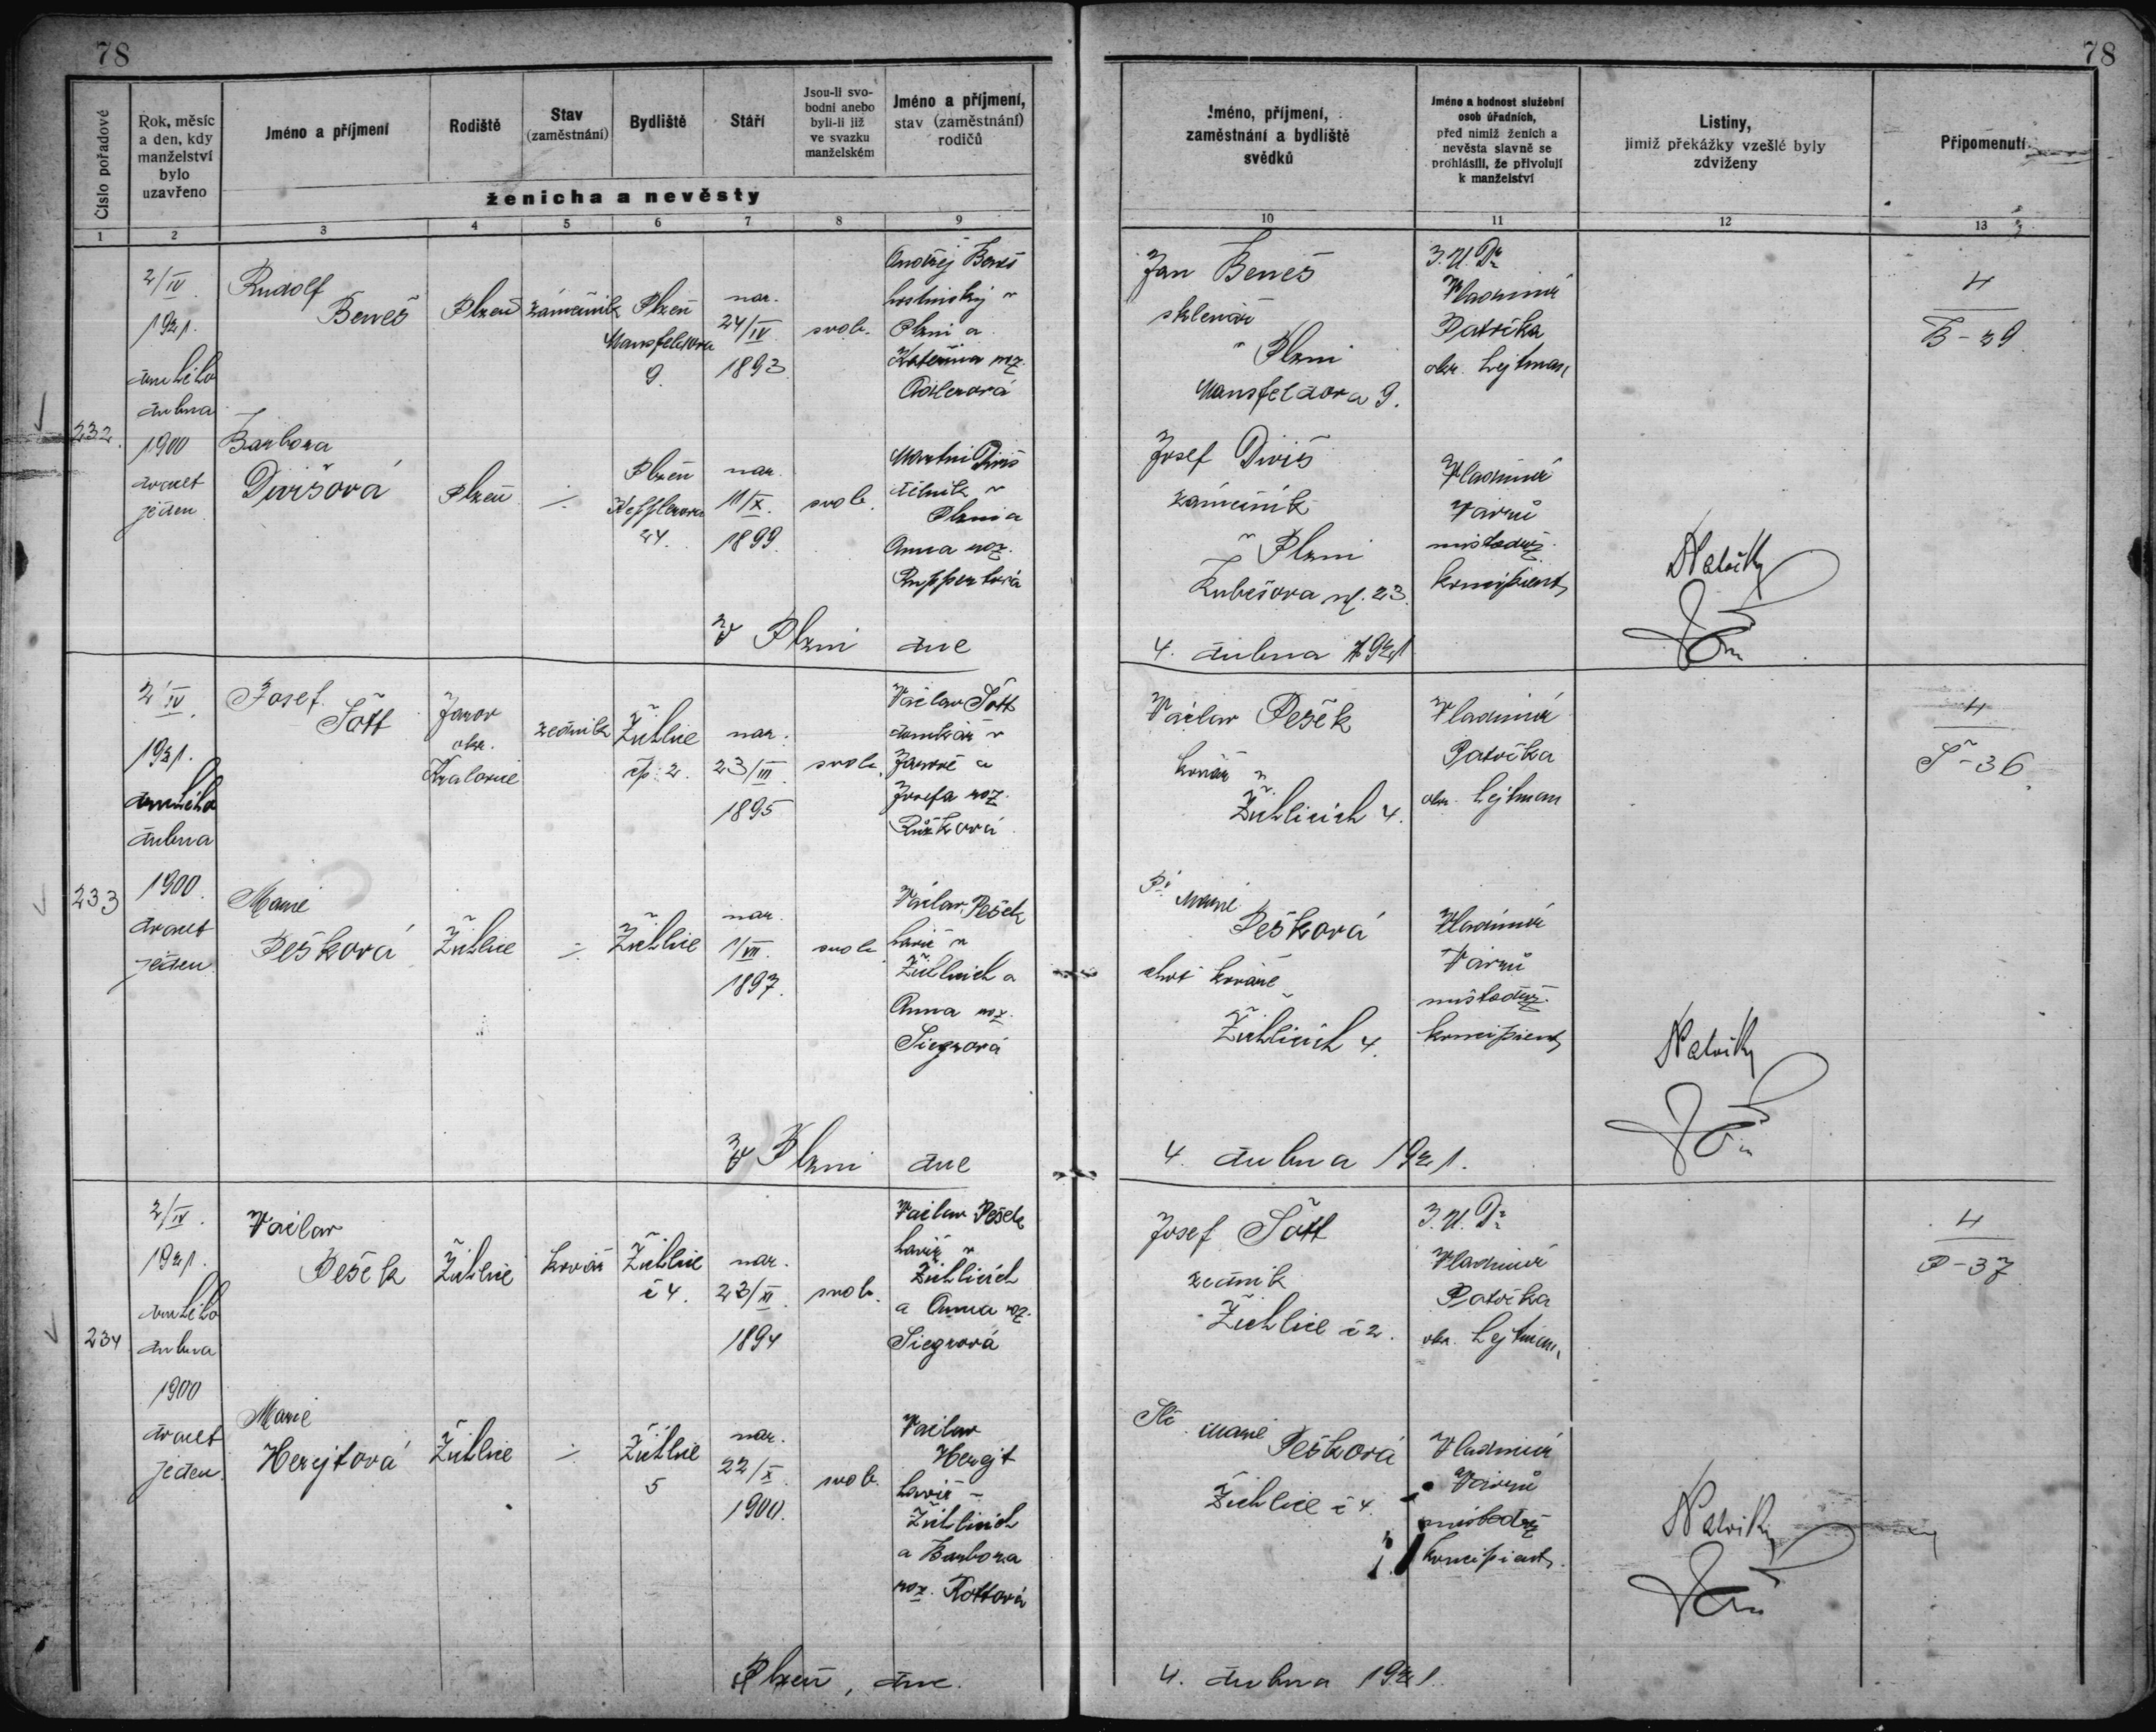 78
78
Číslo pořadové
Rok, měsíc
a den, kdy
manželství
bylo
uzavřeno
Jméno a příjmení
Rodiště
Stav
(zaměstnání)
Bydliště
Stáří
Jsou-li svo-
bodni anebo
byli-li již
ve svazku
manželském
Jméno a příjmení,
stav (zaměstnání)
rodičů
ženicha a nevěsty
Jméno, příjmení,
zaměstnání a bydliště
svědků
Jméno a hodnost služební
osob úřadních,
před nimiž ženich a
nevěsta slavně se
prohlásili, že přivolují
k manželství
Listiny,
jimiž překážky vzešlé byly
zdviženy
Připomenutí
1
2
3
4
5
6
7
8
9
10
11
12
13
232.
2/IV.
1921.
druhého
dubna
1900
dvacet
jeden
Rudolf
Beneš
Plzeň
zámečník
Plzeň
Mansfeldova
9.
nar.
24/IV.
1893.
svob.
Andřej Beneš
hostinský v
Plzni a
Kateřina roz.
Adlerová
Jan Beneš
sklenář
v Plzni
Mansfeldova 9.
J.U.Dr
Vladimír
Patočka
okr. hejtman,
4
B-29
Barbora
Divišová
Plzeň
÷
Plzeň
Kepplerova
24.
nar.
11/X.
1899.
svob.
Martin Diviš
dělník v
Plzni a
Anna roz.
Ruppertová
Josef Diviš
zámečník
v Plzni
Kubešova ul. 23.
Vladimír
Vávrů
místodrž.
koncipient
V Plzni dne 4. dubna 1921
233
2/IV.
1921.
druhého
dubna
1900.
dvacet
jeden
Josef
Šott
Javor
okr.
Kralovice
zedník
Žichlice
čp. 2.
nar.
23/III.
1895
svob.
Václav Šott
domkář v
a
Josefa roz.
Růžková
Václav Pešek
kovář v
Žichlicích 4.
Vladimír
Patočka
okr. hejtman
4
Š-36
Marie
Pešková
Žichlice
÷
Žichlice
nar.
1/VII.
1897.
svob.
Václav Pešek
havíř v
Žichlicích a
Anna roz.
Siegrová
Pí Marie
Pešková
choť kováře
Žichlicích 4.
Vladimír
Vávrů
místodrž.
koncipient
V Plzni dne 4. dubna 1921.
234
2/IV.
1921.
druhého
dubna
1900
dvacet
jeden.
Václav
Pešek
Žichlice
kovář
Žichlice
č 4.
nar.
23/XI.
1894
svob.
Václav Pešek
havíř v
Žichlicích
a Anna roz.
Siegrová
Josef Šott
zedník
Žichlice č 2.
J.U.Dr
Vladimír
Patočka
okr. hejtman,
4
P-37
Marie
Herejtová
Žichlice
÷
Žichlice
5
nar.
22/X.
1900.
svob.
Václav
Herejt
havíř v
Žichlicích
a Barbora
roz. Kottová
Slč. Marie
Pešková
Žichlice č 4.
Vladimír
Vávrů
místodrž.
koncipient.
Plzeň, dne 4. dubna 1921.